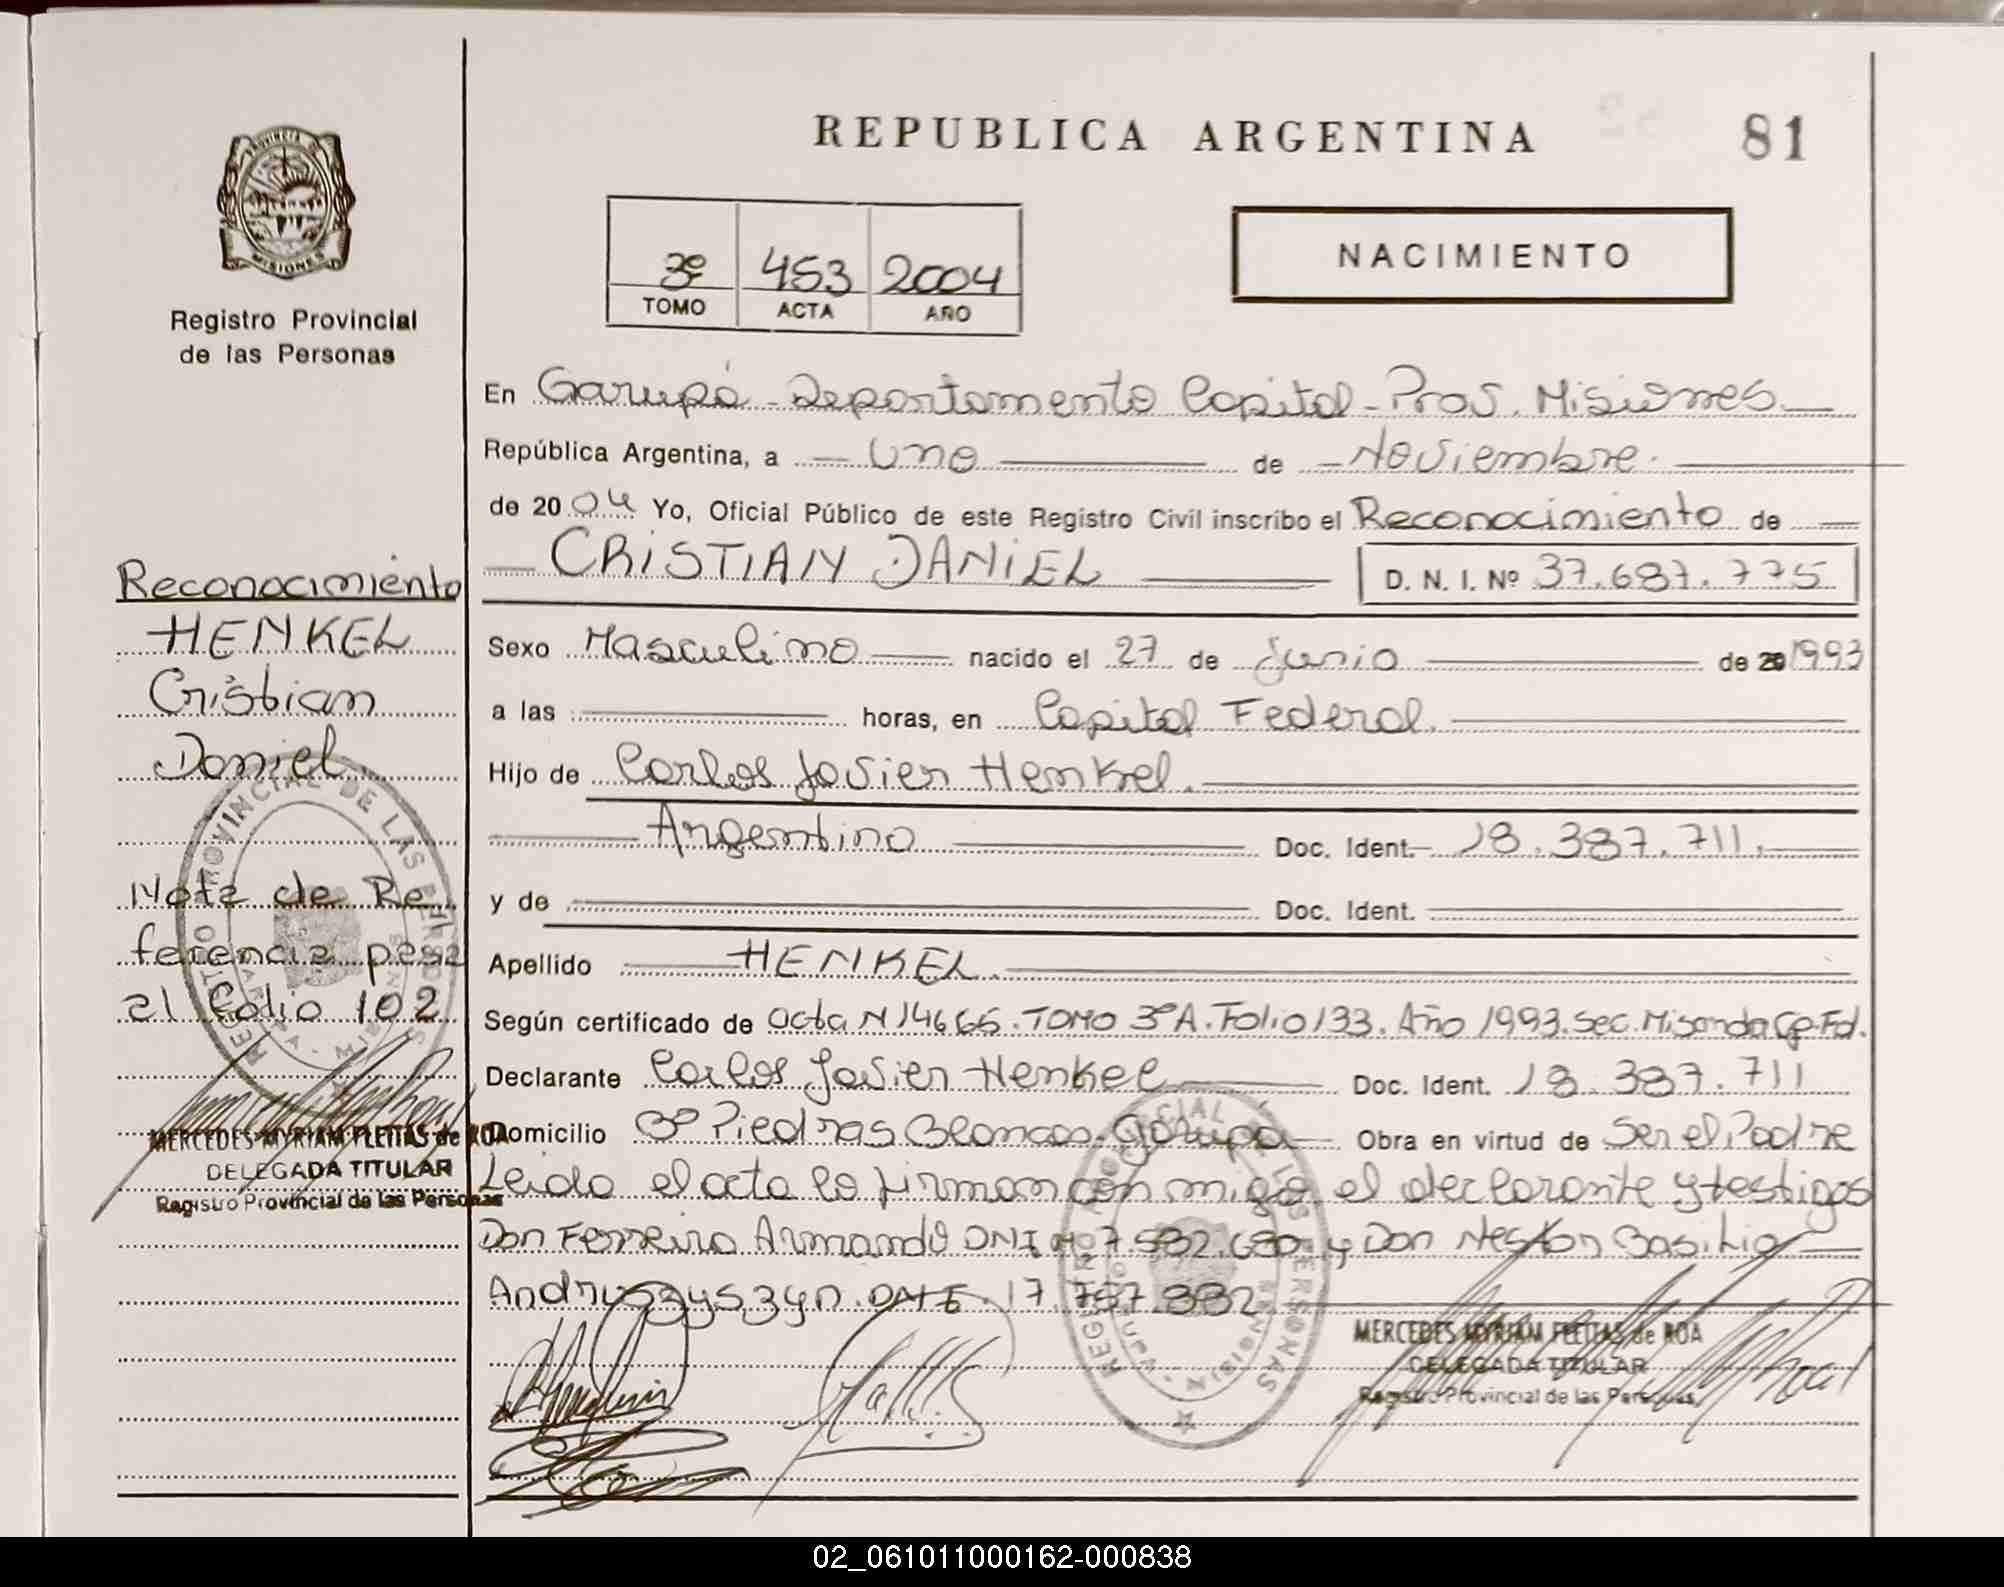 REPUBLICA ARGENTINA
81
PROVINCIA DE
MISIONES
Registro Provincial
de las Personas
3º 453 2004
TOMO ACTA AÑO
NACIMIENTO
En Garupá - Departamento Capital - Prov. Misiones.
República Argentina, a Uno de Noviembre.
de 2004 Yo, Oficial Público de este Registro Civil inscribo el Reconocimiento de
CRISTIAN DANIEL D. N. I. Nº 37.687.775
Sexo Masculino nacido el 27 de Junio de 20 1993
a las horas, en Capital Federal.
Hijo de Carlos Javier Henkel.
Argentino Doc. Ident. 18.387.711.
y de Doc. Ident.
Apellido HENKEL.
Según certificado de acta N 14665. TOMO 3º A. Folio 133. Año 1993. Sec. Misonda Cp. Fd.
Declarante Carlos Javier Henkel Doc. Ident. 18.387.711
Domicilio Bº Piedras Blancas - Garupá Obra en virtud de Ser el Padre
Leida el acta la firman con migo el declarante y testigos
Don Ferreira Armando DNI N 7.532.680 y Don Nestor Basilio
Andruszyszyn. DNI. 17.787.332
MERCEDES MYRIAM FLEITAS de ROA
DELEGADA TITULAR
Registro Provincial de las Personas
Reconocimiento
HENKEL
Cristian
Daniel
Nota de Re
ferencia pasa
al Folio 102
MERCEDES MYRIAM FLEITAS de ROA
DELEGADA TITULAR
Registro Provincial de las Personas
02_061011000162-000838